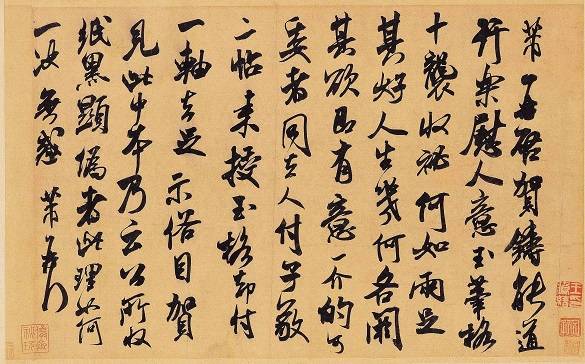 芾頓首啓賀鑄能道
行樂慰人意玉筆格
十襲收秘何如兩足
其好人生幾何各闕
其欲即有意一介的可
委者同去人付子敬
二帖來授玉格却付
一軸去足示俗目賀
見此中本乃云公所收
紙黑顯偽者此理如何
一決無惑芾頓首